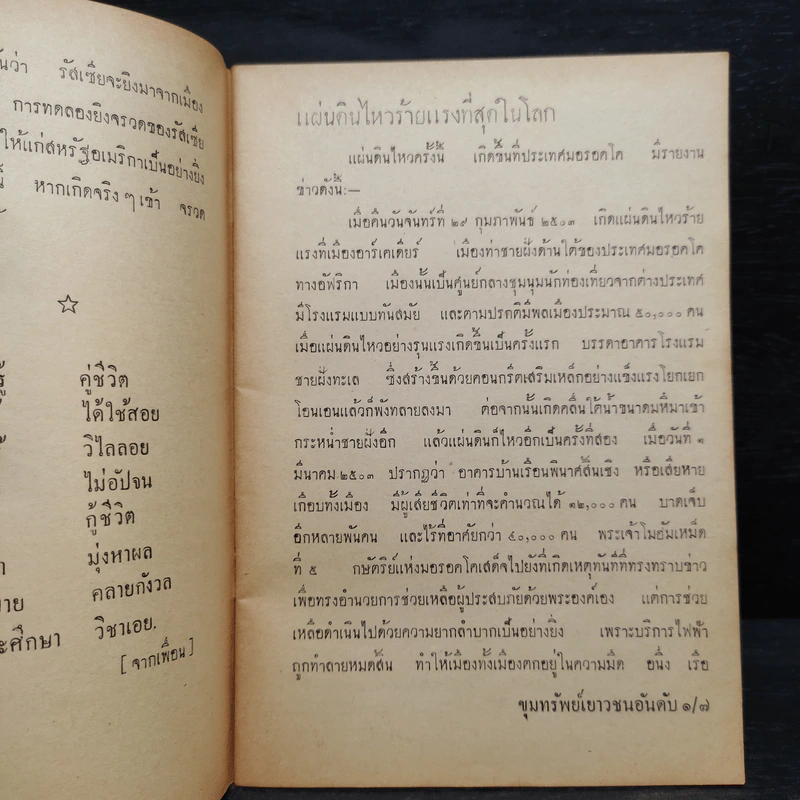 ันว่า รัสเซียจะยิงมาจากเมือง
การทดลองยิงจรวดของรัสเซีย
ให้แก่สหรัฐอเมริกาเป็นอย่างยิ่ง
หากเกิดจริง ๆ เข้า จรวด
คู่ชีวิต
ได้ใช้สอย
วิไลลอย
ไม่อัปจน
กู้ชีวิต
มุ่งหาผล
คลายกังวล
ะศึกษา วิชาเอย.
[ จากเพื่อน ]
แผ่นดินไหวร้ายแรงที่สุดในโลก
แผ่นดินไหวครั้งนี้ เกิดขึ้นที่ประเทศมอรอคโค มีรายงาน
ข่าวดังนี้:—
เมื่อคืนวันจันทร์ที่ ๒๙ กุมภาพันธ์ ๒๕๐๓ เกิดแผ่นดินไหวร้าย
แรงที่เมืองอาร์เคเดียร์ เมืองท่าชายฝั่งด้านใต้ของประเทศมอรอคโค
ทางอัฟริกา เมืองนั้นเป็นศูนย์กลางชุมนุมนักท่องเที่ยวจากต่างประเทศ
มีโรงแรมแบบทันสมัย และตามปรกติมีพลเมืองประมาณ ๕๐,๐๐๐ คน
เมื่อแผ่นดินไหวอย่างรุนแรงเกิดขึ้นเป็นครั้งแรก บรรดาอาคารโรงแรม
ชายฝั่งทะเล ซึ่งสร้างขึ้นด้วยคอนกรีตเสริมเหล็กอย่างแข็งแรงโยกเยก
โอนเอนแล้วก็พังทลายลงมา ต่อจากนั้นเกิดคลื่นใต้น้ำขนาดมหึมาเข้า
กระหน่ำชายฝั่งอีก แล้วแผ่นดินก็ไหวอีกเป็นครั้งที่สอง เมื่อวันที่ ๑
มีนาคม ๒๕๐๓ ปรากฏว่า อาคารบ้านเรือนพินาศสิ้นเชิง หรือเสียหาย
เกือบทั้งเมือง มีผู้เสียชีวิตเท่าที่จะคำนวณได้ ๑๒,๐๐๐ คน บาดเจ็บ
อีกหลายพันคน และไร้ที่อาศัยกว่า ๔๐,๐๐๐ คน พระเจ้าโมฮัมเหม็ด
ที่ ๕ กษัตริย์แห่งมอรอคโคเสด็จไปยังที่เกิดเหตุทันทีที่ทรงทราบข่าว
เพื่อทรงอำนวยการช่วยเหลือผู้ประสบภัยด้วยพระองค์เอง แต่การช่วย
เหลือดำเนินไปด้วยความยากลำบากเป็นอย่างยิ่ง เพราะบริการไฟฟ้า
ถูกทำลายหมดสิ้น ทำให้เมืองทั้งเมืองตกอยู่ในความมืด อนึ่ง เรือ
ขุมทรัพย์เยาวชนอันดับ ๑/๗